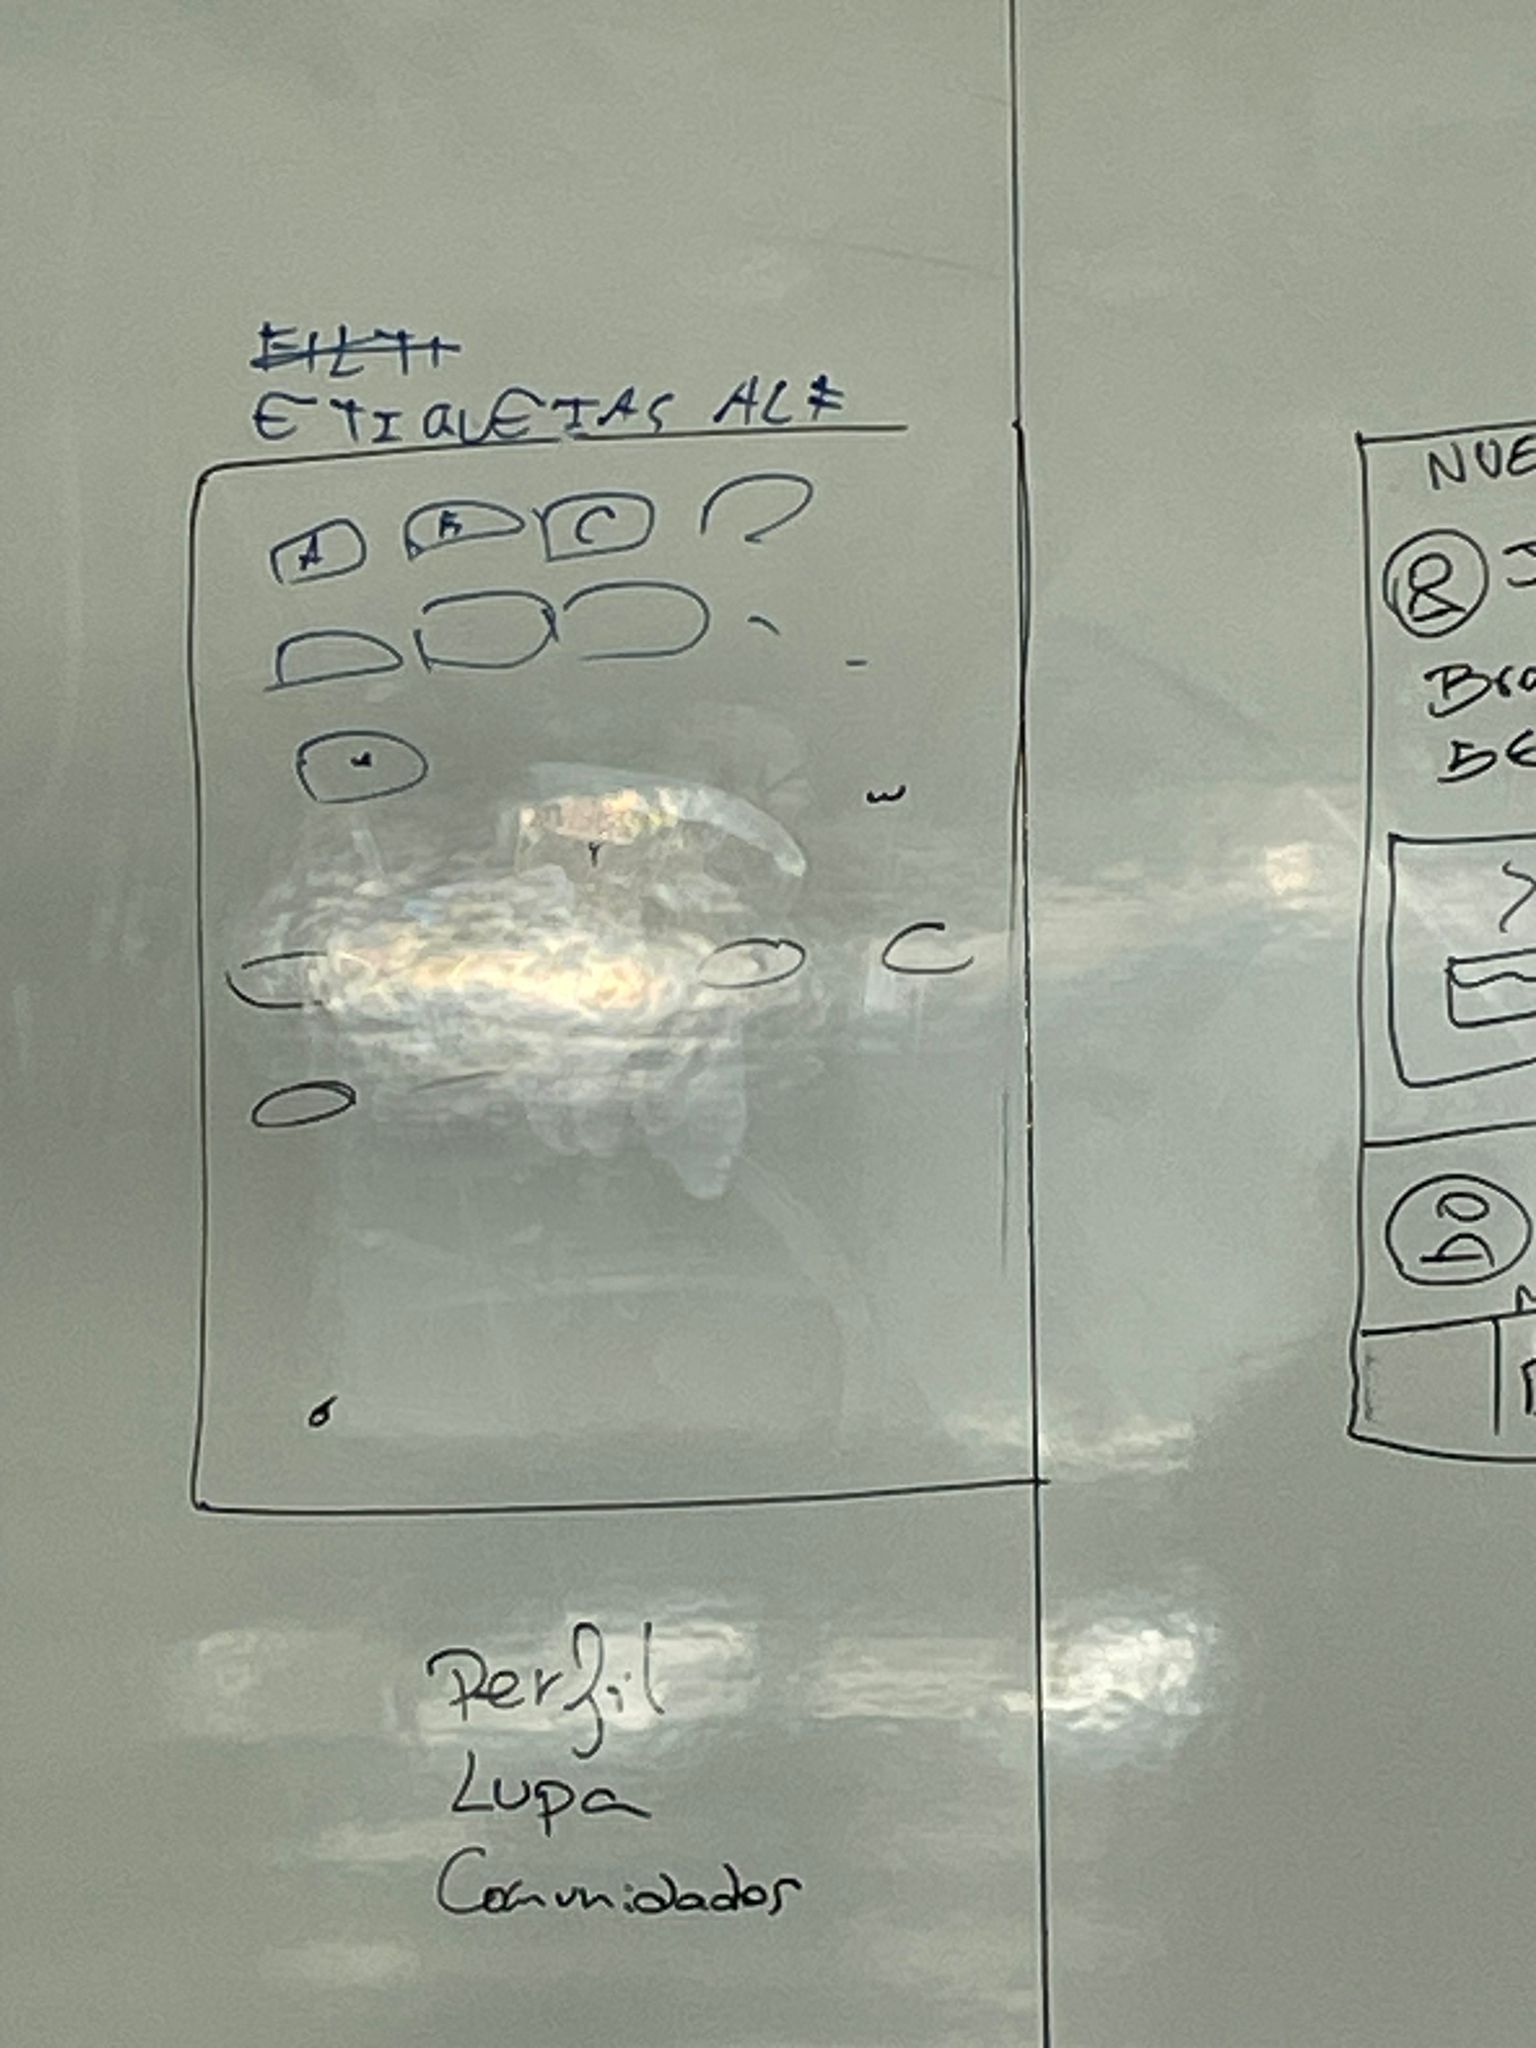 ETIQUETAS ALF
A B C
Perfil
Lupa
Comunidades
NUE
Bro
5€